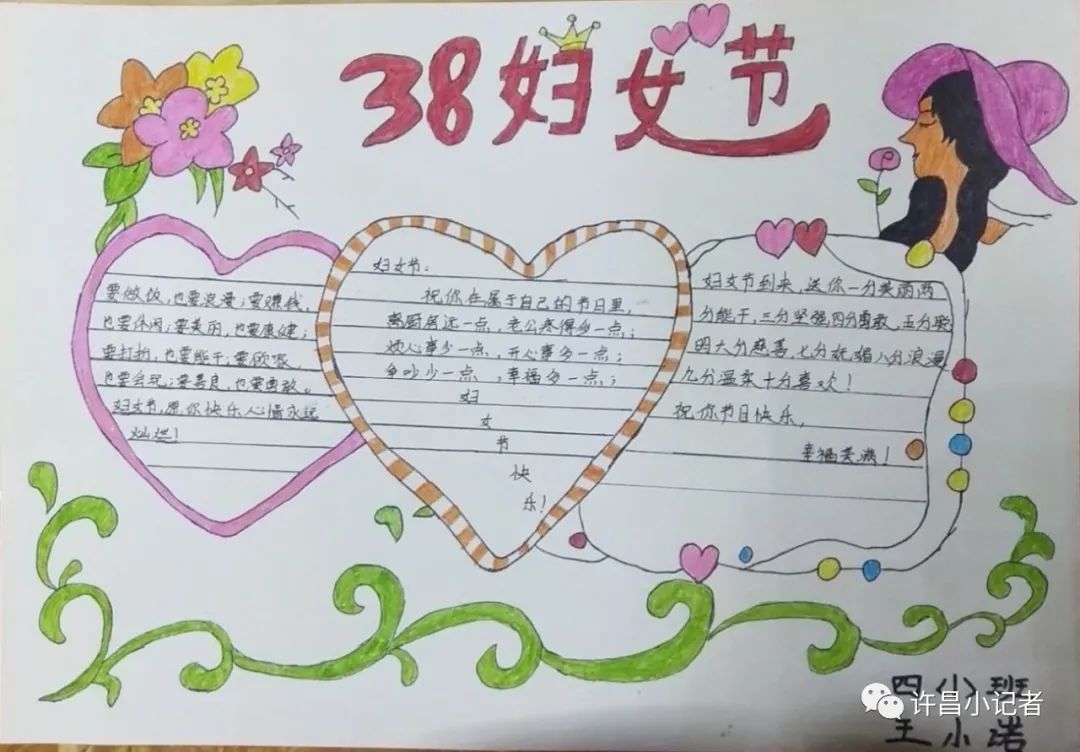 38妇女节
要做饭,也要浪漫;要赚钱,
也要休闲;要美丽,也要康健;
要打扮,也要能干;要欣喜,
也要会玩;要善良,也要勇敢。
妇女节,愿你快乐心情永远
灿烂!
妇女节:
祝你在属于自己的节日里,
离厨房远一点,老公疼得多一点;
烦心事少一点,开心事多一点;
争吵少一点,幸福多一点;
妇
女
节
快
乐!
妇女节到来,送你一分美丽两
分能干,三分坚强,四分勇敢,五分聪
明大分慈善,七分妩媚八分浪漫
九分温柔十分喜欢!
祝你节日快乐,
幸福美满!
四 小 班
王 小
许昌小记者